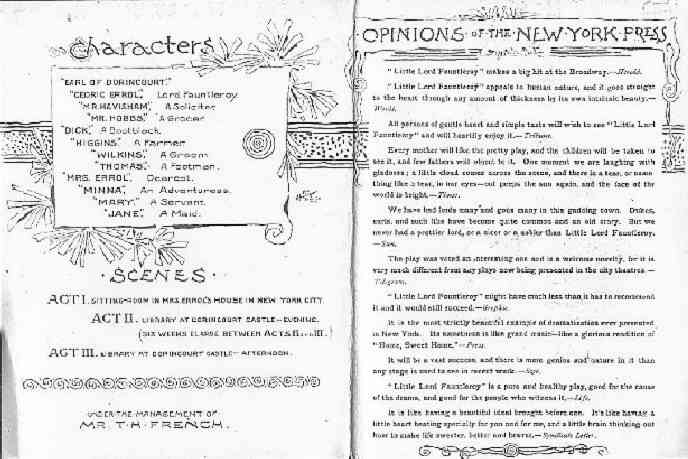 Characters
"EARL OF DORINCOURT."
"CEDRIC ERROL," Lord Fauntleroy.
"MR. HAVISHAM," A Solicitor
"MR. HOBBS," A Grocer
"DICK," A Bootblack.
"HIGGINS," A Farmer
"WILKINS," A Groom
"THOMAS," A Footman.
"MRS. ERROL," Dearest.
"MINNA," An Adventuress.
"MARY," A Servant.
"JANE," A Maid.
· SCENES ·
ACT I. SITTING-ROOM IN MRS. ERROL'S HOUSE IN NEW YORK CITY.
ACT II. LIBRARY AT DORINCOURT CASTLE — EVENING.
(SIX WEEKS ELAPSE BETWEEN ACTS II. AND III.)
ACT III. LIBRARY AT DORINCOURT CASTLE — AFTERNOON.
UNDER THE MANAGEMENT OF
MR. T. H. FRENCH.
OPINIONS OF THE NEW YORK PRESS
"Little Lord Fauntleroy" makes a big hit at the Broadway.—Herald.
"Little Lord Fauntleroy" appeals to human nature, and it goes straight
to the heart through any amount of thickness by its own intrinsic beauty.—
World.
All persons of gentle heart and simple taste will wish to see "Little Lord
Fauntleroy" and will heartily enjoy it.—Tribune.
Every mother will like the pretty play, and the children will be taken to
see it, and few fathers will object to it. One moment we are laughing with
gladness; a little cloud comes across the scene, and there is a tear, or some-
thing like a tear, in our eyes—out peeps the sun again, and the face of the
world is bright.—Times.
We have had lords many and gods many in this gadding town. Dukes,
earls, and such like have become quite common and an old story. But we
never had a prettier lord, or a nicer or a nobler than Little Lord Fauntleroy.
—Sun.
The play was voted an interesting one and is a welcome novelty, for it is
very much different from any plays now being presented in the city theatres.—
Telegram.
"Little Lord Fauntleroy" might have much less than it has to recommend
it and it would still succeed.—Graphic.
It is the most strictly beautiful example of dramatization ever presented
in New York. Its expression is like grand music—like a glorious rendition of
"Home, Sweet Home."—Press.
It will be a vast success, and there is more genius and nature in it than
any stage is used to see in recent week.—Sign.
"Little Lord Fauntleroy" is a pure and healthy play, good for the cause
of the drama, and good for the people who witness it.—Life.
It is like having a beautiful ideal brought before one. It's like having a
little heart beating specially for you and for me, and a little brain thinking out
how to make life sweeter, better and braver.—Syndicate Letter.